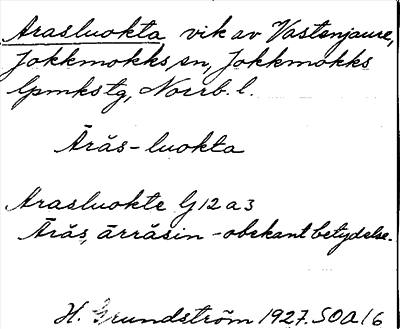 Arasluokta vik av Vastenjaure,
Jokkmokks sn, Jokkmokks
lpmkstg, Norrb. l.
Ārăs-luokta
Arasluokte G12a3
Ārăs, ārrăsin - obekant betydelse.
H. Grundström 1927. SOA16